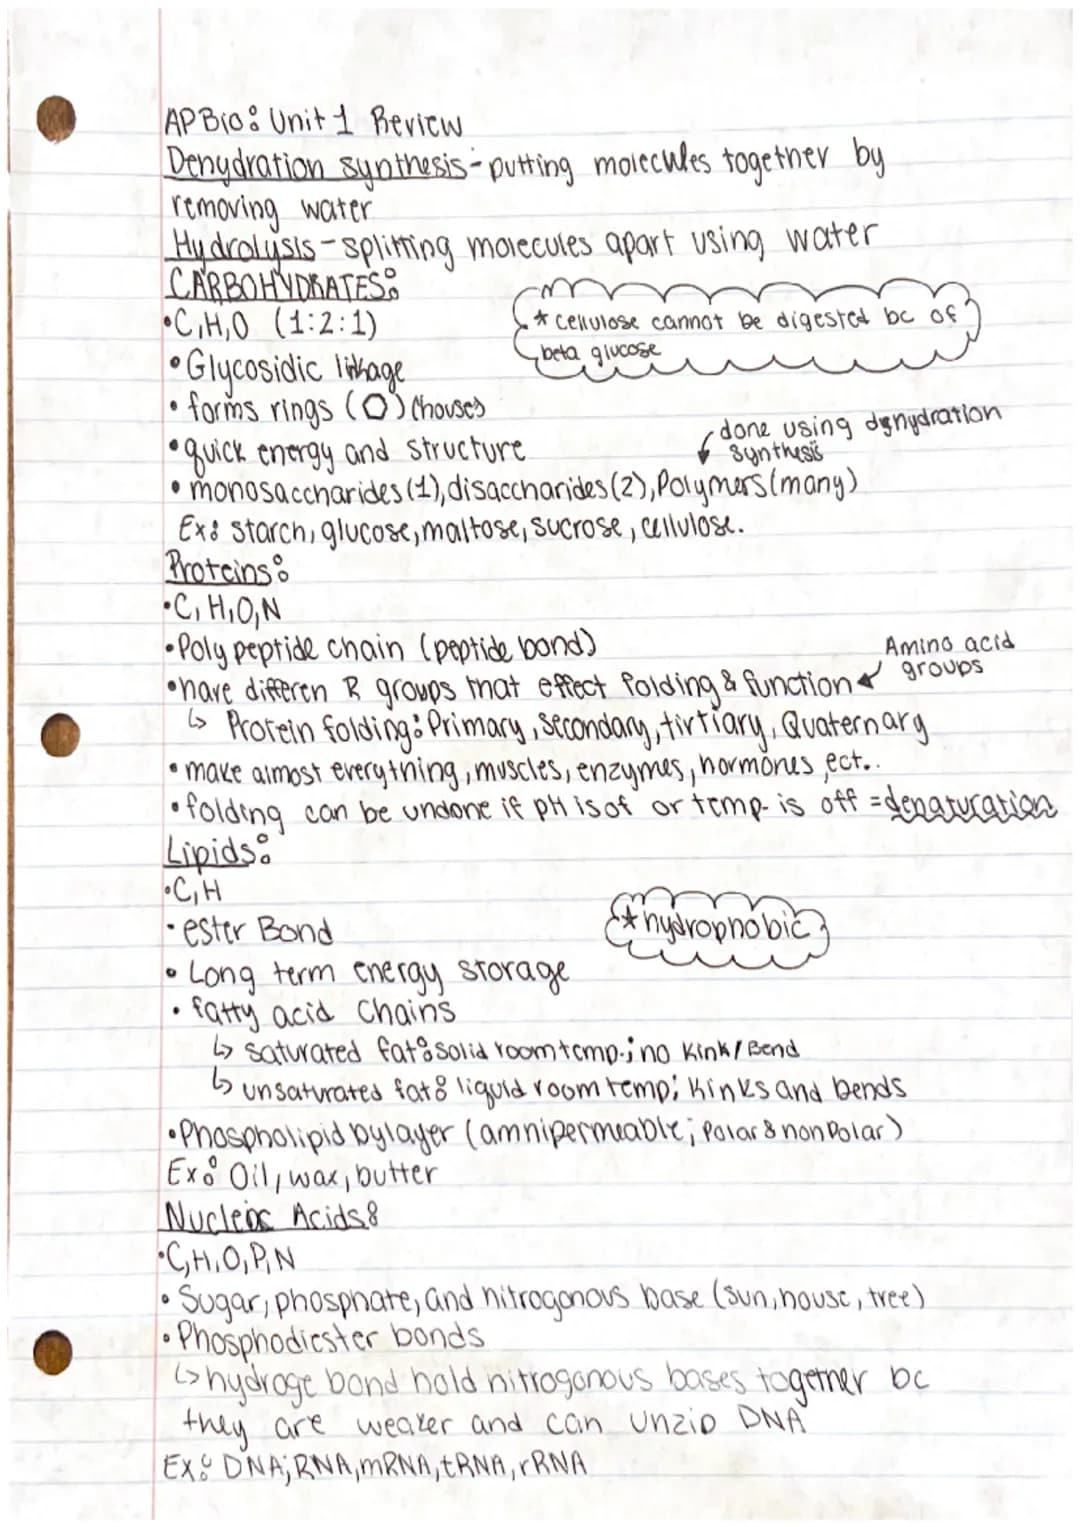 AP Bio: Unit 1 Review
Denydration synthesis - putting molecules together by
removing water
Hydrolysis - splitting molecules apart using water
CARBOHYDRATES:
• C, H, O (1:2:1)
* cellulose cannot be digested bc of
beta glucose
• Glycosidic linkage
• forms rings (⬡) (houses
• quick energy and structure
done using dehydration
synthesis
• monosaccharides (1), disaccharides (2), Polymers (many)
Ex: starch, glucose, maltose, sucrose, cellulose.
Proteins:
• C, H, O, N
• Poly peptide chain (peptide bond)
Amino acid
groups
• have differen R groups that effect folding & function
↳ Protein folding: Primary, Secondary, tirtiary, Quaternary
• make almost everything, muscles, enzymes, hormones, ect..
• folding can be undone if pH is of or temp. is off = denaturation
Lipids:
• C, H
• ester Bond
* hydrophobic
• Long term energy storage
• fatty acid Chains
↳ saturated fat: solid room temp.; no Kink/Bend
↳ unsaturated fat: liquid room temp; Kinks and bends
• Phospholipid bylayer (amnipermeable; Polar & nonPolar)
Ex: Oil, wax, butter
Nucleic Acids:
• C, H, O, P, N
• Sugar, phosphate, and nitrogonous base (sun, house, tree)
• Phosphodiester bonds
↳ hydroge bond hold nitrogonous bases together bc
they are weaker and can unzip DNA
Ex: DNA; RNA, mRNA, tRNA, rRNA